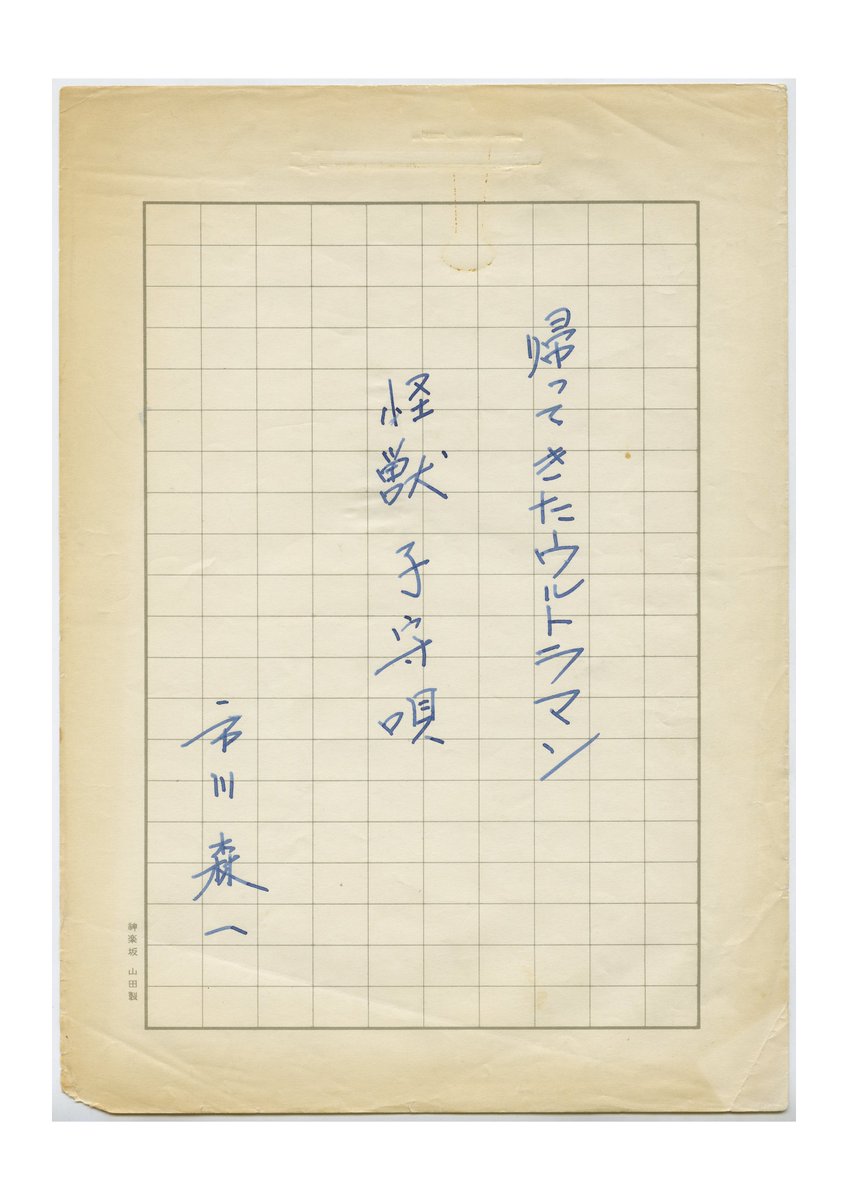 帰ってきたウルトラマン
怪獣子守唄
市川森一
神楽坂 山田製